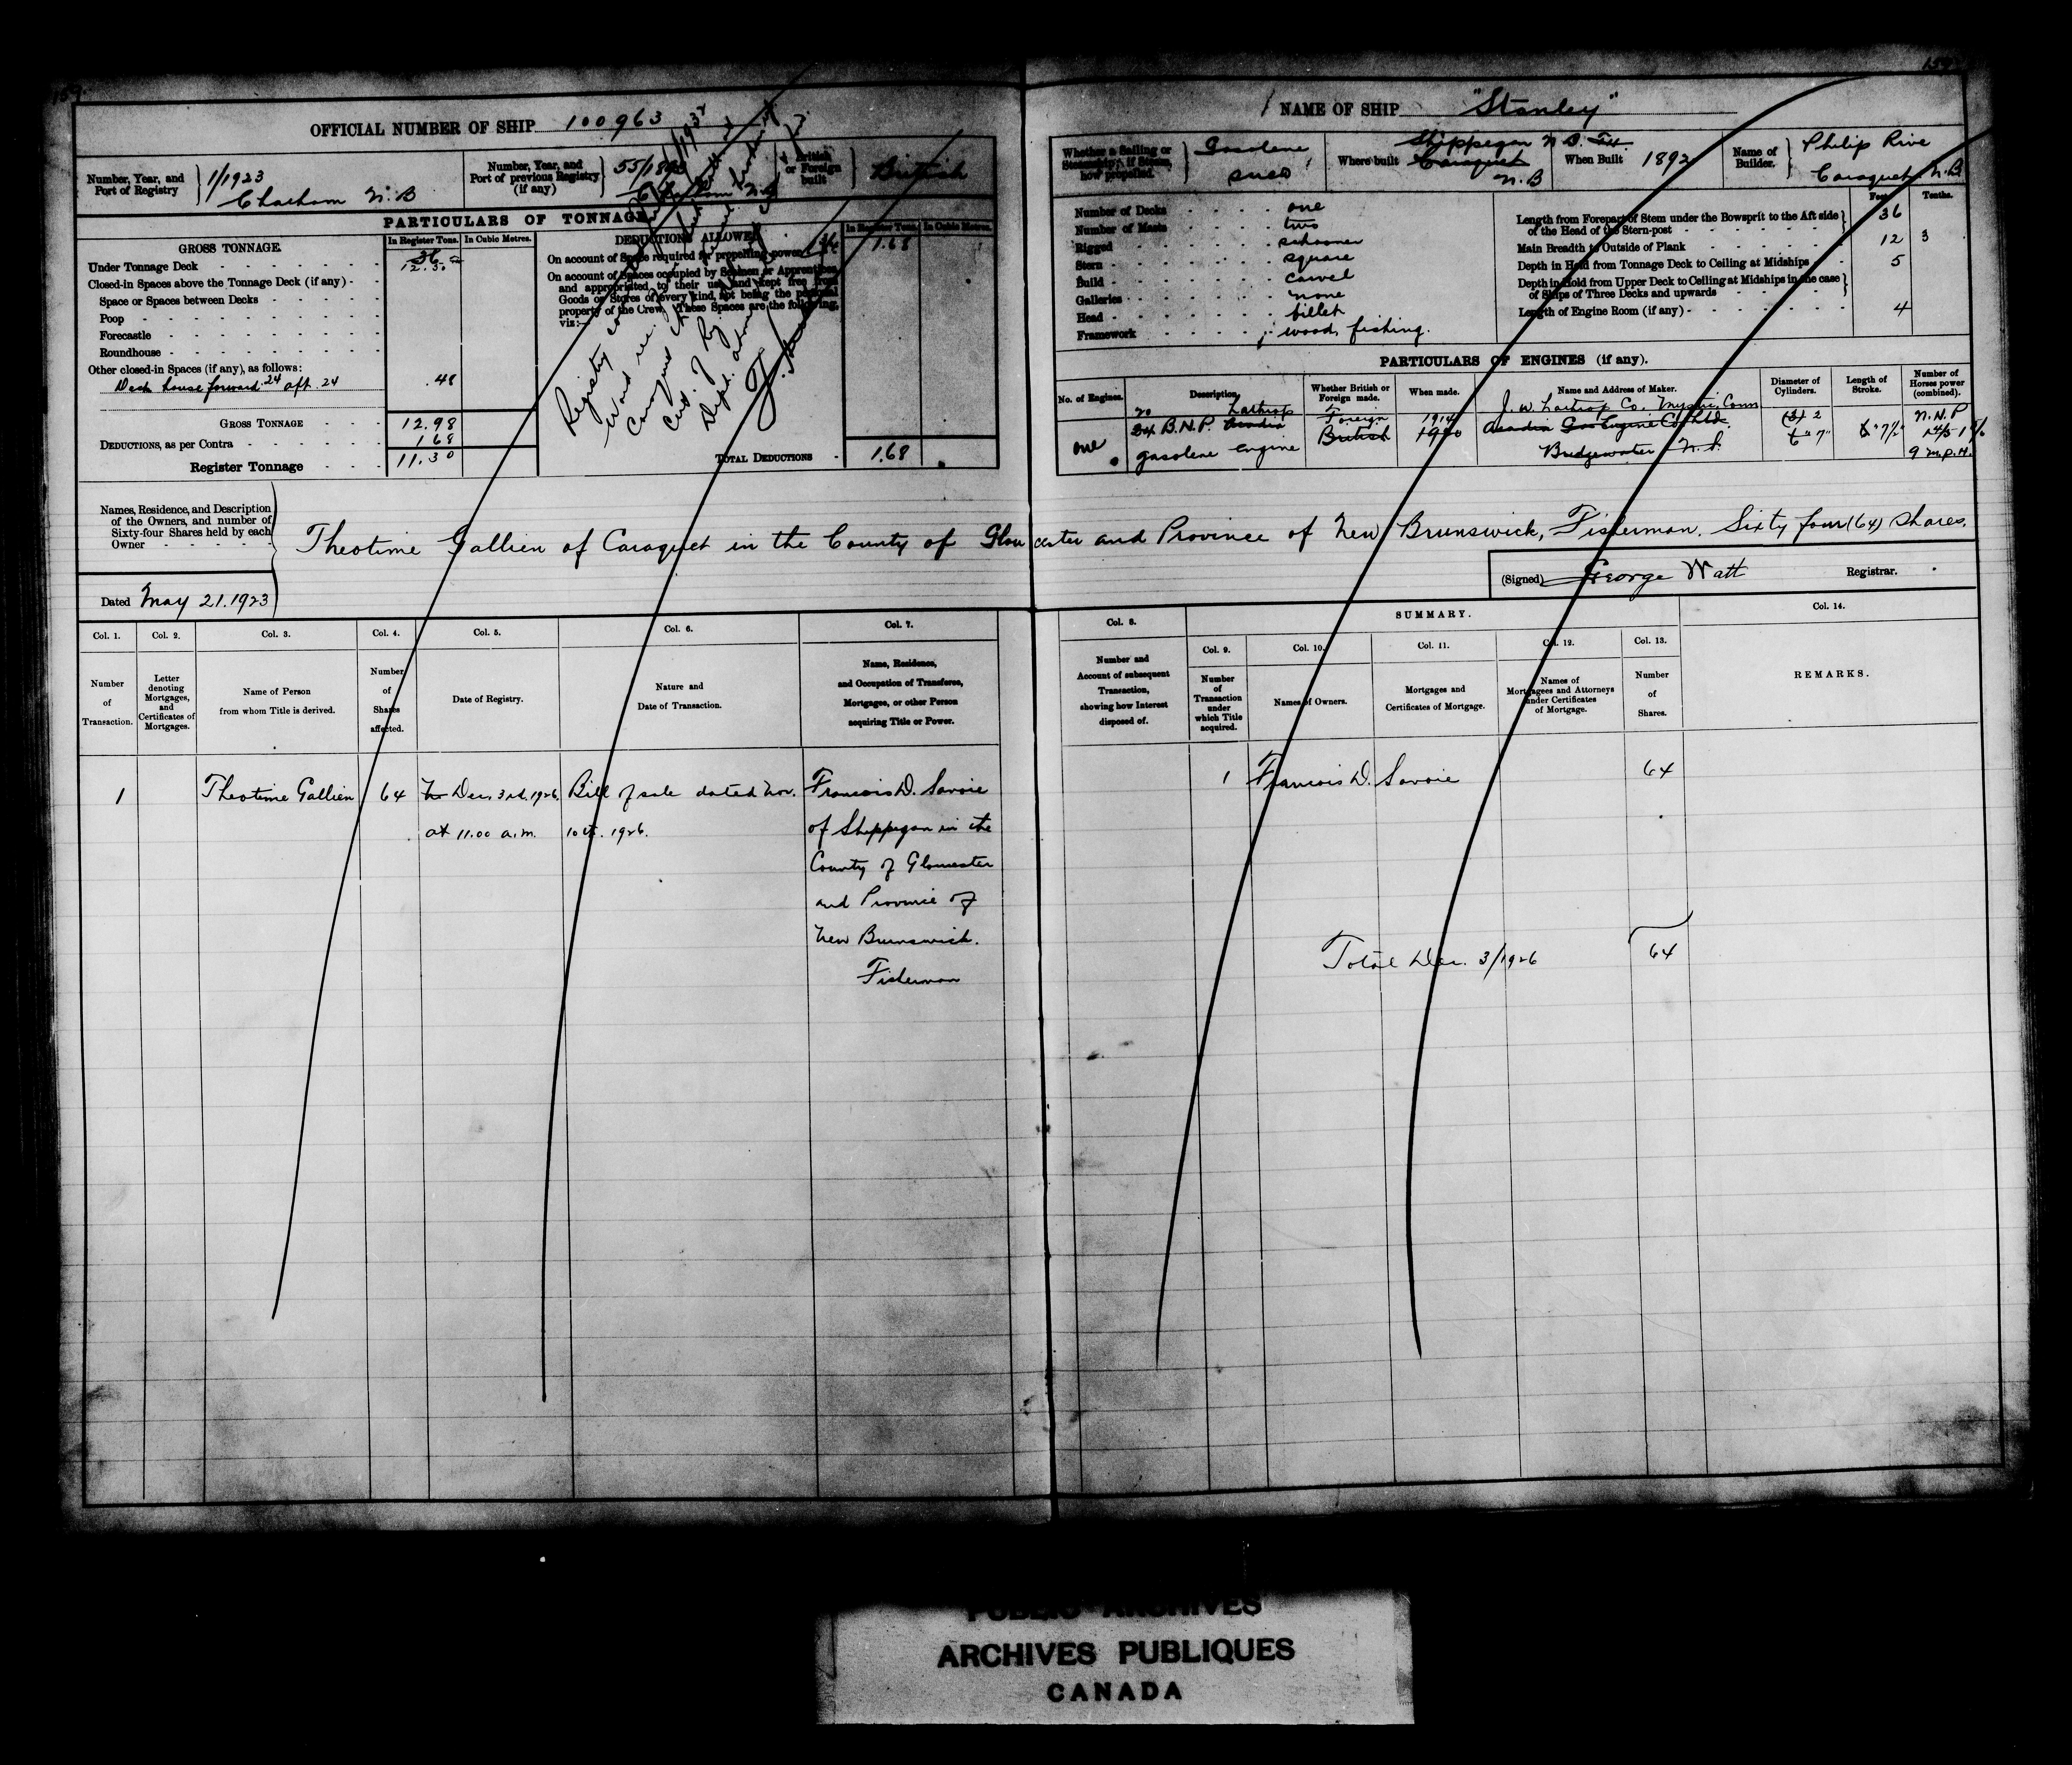 159
OFFICIAL NUMBER OF SHIP 100963
Number, Year, and Port of Registry
1/1923
Chatham N.B
Number, Year, and Port of previous Registry (if any)
55/1893
British or Foreign built
British
PARTICULARS OF TONNAGE
GROSS TONNAGE.
In Register Tons.
In Cubic Metres.
Under Tonnage Deck
12.50
Closed-in Spaces above the Tonnage Deck (if any)
Space or Spaces between Decks
Poop
Forecastle
Roundhouse
Other closed-in Spaces (if any), as follows:
Deck house forward 24 aft 24
.48
GROSS TONNAGE
12.98
DEDUCTIONS, as per Contra
1.68
Register Tonnage
11.30
DEDUCTIONS ALLOWED
In Register Tons.
In Cubic Metres.
On account of Space required for propelling power
1.68
On account of Spaces occupied by Seamen or Apprentices,
and appropriated to their use, and kept free from
Goods or Stores of every kind, not being the personal
property of the Crew. These Spaces are the following,
viz:—
TOTAL DEDUCTIONS
1.68
Registry
Names, Residence, and Description
of the Owners, and number of
Sixty-four Shares held by each
Owner
Theotime Gallien of Caraquet in the County of Gloucester and Province of New Brunswick, Fisherman. Sixty four (64) Shares.
Dated May 21. 1923
NAME OF SHIP "Stanley"
Whether a Sailing or Steamship; if Steam, how propelled.
Gasolene
Screw
Where built
Shippegan N.B.
Caraquet
N.B
When Built
1892
Name of Builder.
Philip Rive
Caraquet, N.B
Number of Decks one
Number of Masts two
Rigged schooner
Stern square
Build carvel
Galleries none
Head billet
Framework wood, fishing.
Feet. Tenths.
Length from Forepart of Stem under the Bowsprit to the Aft side
of the Head of the Stern-post 36
Main Breadth to Outside of Plank 12 3
Depth in Hold from Tonnage Deck to Ceiling at Midships 5
Depth in Hold from Upper Deck to Ceiling at Midships in the case
of Ships of Three Decks and upwards
Length of Engine Room (if any) 4
PARTICULARS OF ENGINES (if any).
No. of Engines.
Description.
Whether British or Foreign made.
When made.
Name and Address of Maker.
Diameter of Cylinders.
Length of Stroke.
Number of Horses power (combined).
one
20 Lathrop
24 B.H.P. Acadia
gasolene engine
Foreign
British
1914
1920
J. W. Lathrop Co. Mystic, Conn
Acadia Gas Engine Co. Ltd.
Bridgewater N.S.
N.H.P
9 m.p.h.
(Signed) George Watt Registrar.
Col. 1.
Number of Transaction.
Col. 2.
Letter denoting Mortgages, and Certificates of Mortgages.
Col. 3.
Name of Person from whom Title is derived.
Col. 4.
Number of Shares affected.
Col. 5.
Date of Registry.
Col. 6.
Nature and Date of Transaction.
Col. 7.
Name, Residence, and Occupation of Transferee, Mortgagee, or other Person acquiring Title or Power.
Col. 8.
Number and Account of subsequent Transaction, showing how Interest disposed of.
SUMMARY.
Col. 9.
Number of Transaction under which Title acquired.
Col. 10.
Names of Owners.
Col. 11.
Mortgages and Certificates of Mortgage.
Col. 12.
Names of Mortgagees and Attorneys under Certificates of Mortgage.
Col. 13.
Number of Shares.
Col. 14.
REMARKS.
1
Theotime Gallien
64
Dec. 3rd. 1926.
at 11.00 a.m.
Bill of sale dated Nov.
10th. 1926.
Francois D. Savoie
of Shippegan in the
County of Gloucester
and Province of
New Brunswick.
Fisherman
1
Francois D. Savoie
64
Total Dec. 3/1926
64
PUBLIC ARCHIVES
ARCHIVES PUBLIQUES
CANADA